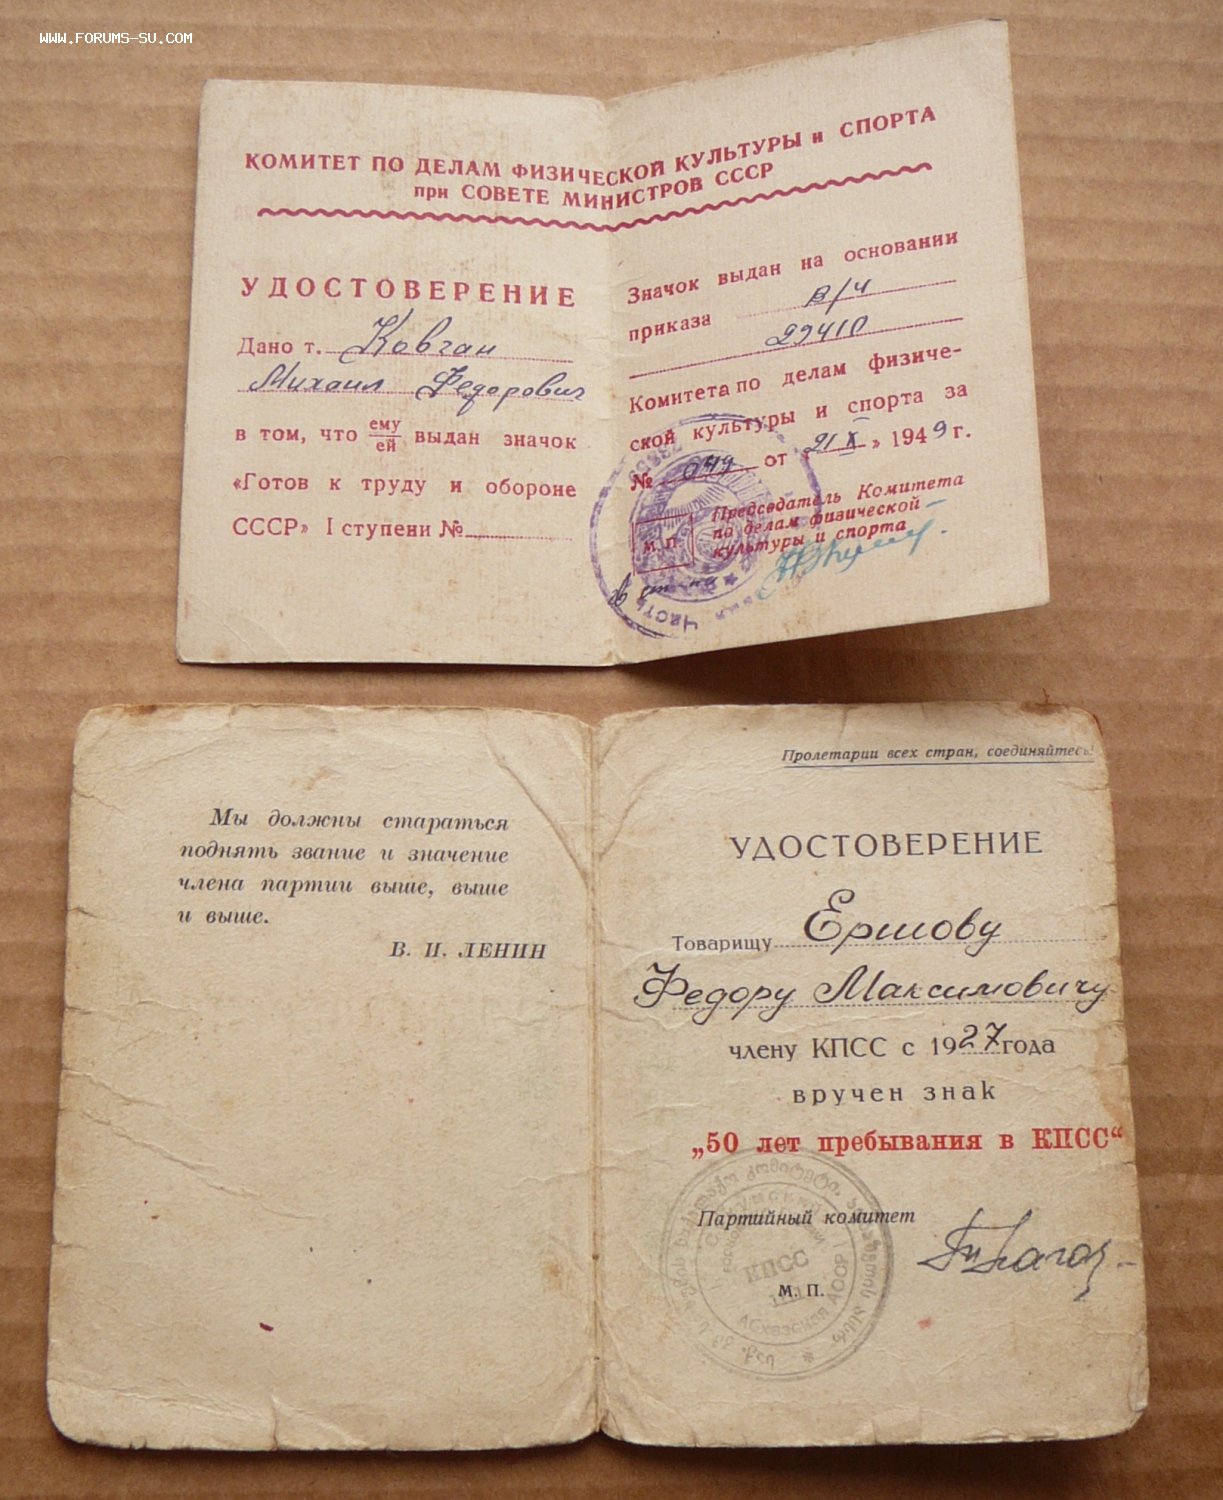 www.forums-su.com
КОМИТЕТ ПО ДЕЛАМ ФИЗИЧЕСКОЙ КУЛЬТУРЫ и СПОРТА
при СОВЕТЕ МИНИСТРОВ СССР
УДОСТОВЕРЕНИЕ
Дано т. Ковган
Михаил Федорович
в том, что ему/ей выдан значок
«Готов к труду и обороне
СССР» I ступени №
Значок выдан на основании
приказа в/ч
29410
Комитета по делам физиче-
ской культуры и спорта за
№ 049 от «21 X » 1949 г.
Председатель Комитета
по делам физической
культуры и спорта
м. п.
Мы должны стараться
поднять звание и значение
члена партии выше, выше
и выше.
В. И. ЛЕНИН
Пролетарии всех стран, соединяйтесь!
УДОСТОВЕРЕНИЕ
Товарищу Ершову
Федору Максимовичу
члену КПСС с 1927 года
вручен знак
„50 лет пребывания в КПСС“
Партийный комитет
КПСС
М. П.
Абхазская АССР